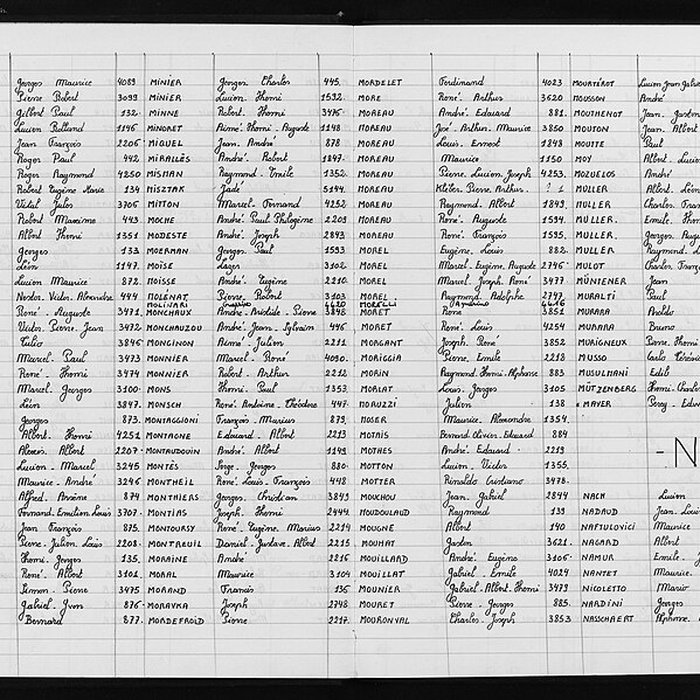 Georges Maurice 4089 MINIER Georges Charles 445. MORDELET Ferdinand 4023 MOURTÉROT Lucien Jean Gabriel
Pierre Robert 3099 MINIER Lucien. Henri 1592. MORE René. Arthur 3620 MOUSSON André
Gilbert Paul 132. MINNE Robert. Henri 3476. MOREAU André. Edouard 881. MOUTHENOT Jean.
Lucien Rolland 1146 MINORET Aimé. Henri. Auguste 1148 MOREAU José. Arthur. Maurice 3850 MOUTON Jean. Albert
Jean François 2206 MIQUEL Jean. André 878 MOREAU Louis. Ernest 1848 MOUTTE Paul
Roger Paul 442 MIRALLÈS André. Robert 1847. MOREAU Maurice 1150 MOY Albert.
Roger Raymond 4250 MISMAN Raymond. Emile 1352. MOREAU Pierre. Lucien. Joseph 4253. MOZUELOS André
Robert Eugène Marie 134 MISZTAK Jade 5144. MOREAU Kléber. Pierre. Arthur. ? 1 MULLER Albert.
Vital Jules 3706 MITTON Marcel. Fernand 4252 MOREAU Raymond. Albert 1849. MULLER Charles.
Robert Maxime 443 MOCHE André Paul Philogène 2209 MOREAU René. Auguste 1594. MULLER. Emile.
Albert Henri 1351 MODESTE André Joseph 2843 MOREAU René. François 1595. MULLER. Georges
Georges 133 MOERMAN Georges. Paul 1593 MOREL Eugène. Louis 882. MULLER Raymond.
Léon 1147. MOÏSE Lazar 3102. MOREL Marcel. Eugène. Auguste 2746 MULOT Charles.
Lucien Maurice 872 MOISSE André. Eugène 2210. MOREL Marcel. Joseph. René 3477 MÜNTENER Jean
Nestor. Victor. Alexandre 444 MOLENAT Pierre. Robert 3103 MOREL Raymond. Adolphe 2747. MURALTI Paul
MOLINARI 4420 MORELLI 6616
René. Auguste 3471. MONCHAUX André. Aristide. Pierre 3848 MORET René 3851 MURARA
Victor. Pierre. Jean 3472 MONCHAUZOU André. Jean. Sylvain 446 MORET René. Louis 4254 MURARA Bruno
Tulio 3846 MONGINON Aimé Julien 2211 MORGANT Joseph. René 3852 MURIGNEUX Pierre. Henri
Marcel. Paul 3473 MONNIER Marcel. René 4090. MORIGGIA Pierre. Emile 2218 MUSSO Carlo
René. Henri 3474 MONNIER Robert. Arthur 2212 MORIN Raymond. Henri. Alphonse 883 MUSULMANI Edib
Marcel. Georges 3100. MONS Henri. Paul 1353. MORLAT Louis. Georges 3105 MÜTZENBERG Henri.
Léon 3847. MONSCH René. Antoine. Théodore 447. MORUZZI Julien 138 MAYER
Georges 873. MONTAGGIONI François. Marius 879. MOSER Maurice. Alexandre 1354.
Albert. Henri 4251 MONTAGNE Edouard. Albert 2213 MOTAIS Bernard. Olivier. Edouard 884
Alexis. Albert 2207. MONTAUDOUIN André. Albert 1149 MOTHES André. Edouard 2219 - N
Lucien. Marcel 3245 MONTÈS Serge. Georges 880. MOTTON Lucien. Victor 1355.
Maurice. André 3246 MONTHEIL René. Louis. François 448 MOTTER Rinaldo. Cristiano 3478.
Alfred. Arsène 874 MONTHIERS Georges. Christian 3849 MOUCHOU Jean. Gabriel 2844 NACH Lucien
Fernand. Emilien. Louis 3707. MONTIAS Joseph. Henri 2444. MOUDOULAUD Raymond 139 NADAUD Jean. Louis
Jean François 875. MONTOURSY René. Eugène. Marius 2214 MOUGNE Albert 140 NAFTULOVICI Maurice
Pierre. Julien. Louis 2208. MONTREUIL Daniel. Gustave. Albert 2215 MOUHAT Gaston 3621. NAGARD Albert
Henri. Georges 135. MORAINE André 2216 MOUILLARD André. Eugène 3106. NAMUR Emile.
René. Albert 3101. MORAL Maurice 3104 MOUILLAT Gabriel. Emile 4024 NANTET Maurice
Simon. Pierre 3475 MORAND Francis 136 MOUNIER Gabriel. Albert. Henri 3479 NICOLETTO Mario
Gabriel. Yvon 876. MORAVKA Joseph 2748 MOURET Pierre. Georges 885. NARDINI Georges
Bernard 877. MORDEFROID Pierre 2217. MOURONVAL Charles. Joseph 3853 NASSCHAERT Alphonse.